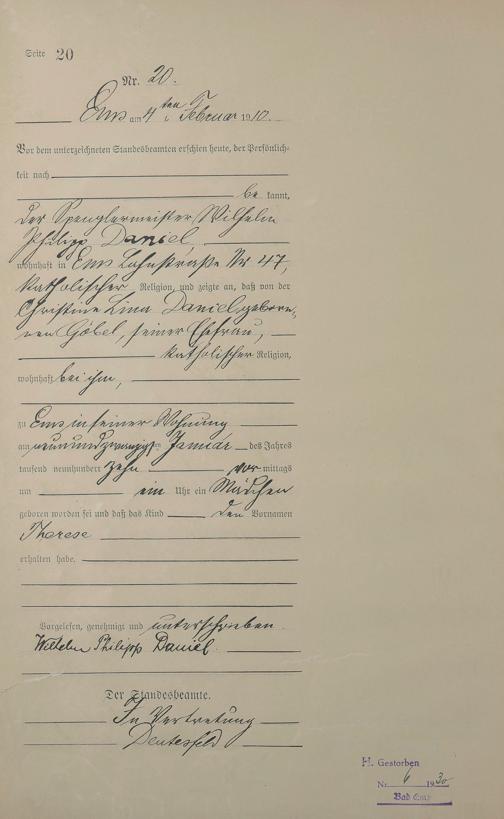 Seite 20
Nr. 20.
Ems am 4ten Februar 1910.
Vor dem unterzeichneten Standesbeamten erschien heute, der Persönlich-
keit nach
be kannt,
der Spenglermeister Wilhelm
Philipp Daniel,
wohnhaft in Ems Lahnstraße Nr 47,
katholischer Religion, und zeigte an, daß von der
Christine Lina Daniel, gebore-
nen Göbel, seiner Ehefrau,
katholischer Religion,
wohnhaft bei ihm,
zu Ems in seiner Wohnung
am neunundzwanzigsten Januar des Jahres
tausend neunhundert zehn vor mittags
um ein Uhr ein Mädchen
geboren worden sei und daß das Kind den Vornamen
Therese
erhalten habe.
Vorgelesen, genehmigt und unterschrieben
Wilhelm Philipp Daniel
Der Standesbeamte.
In Vertretung
H. Gestorben
Nr. 6 1930
Bad Ems